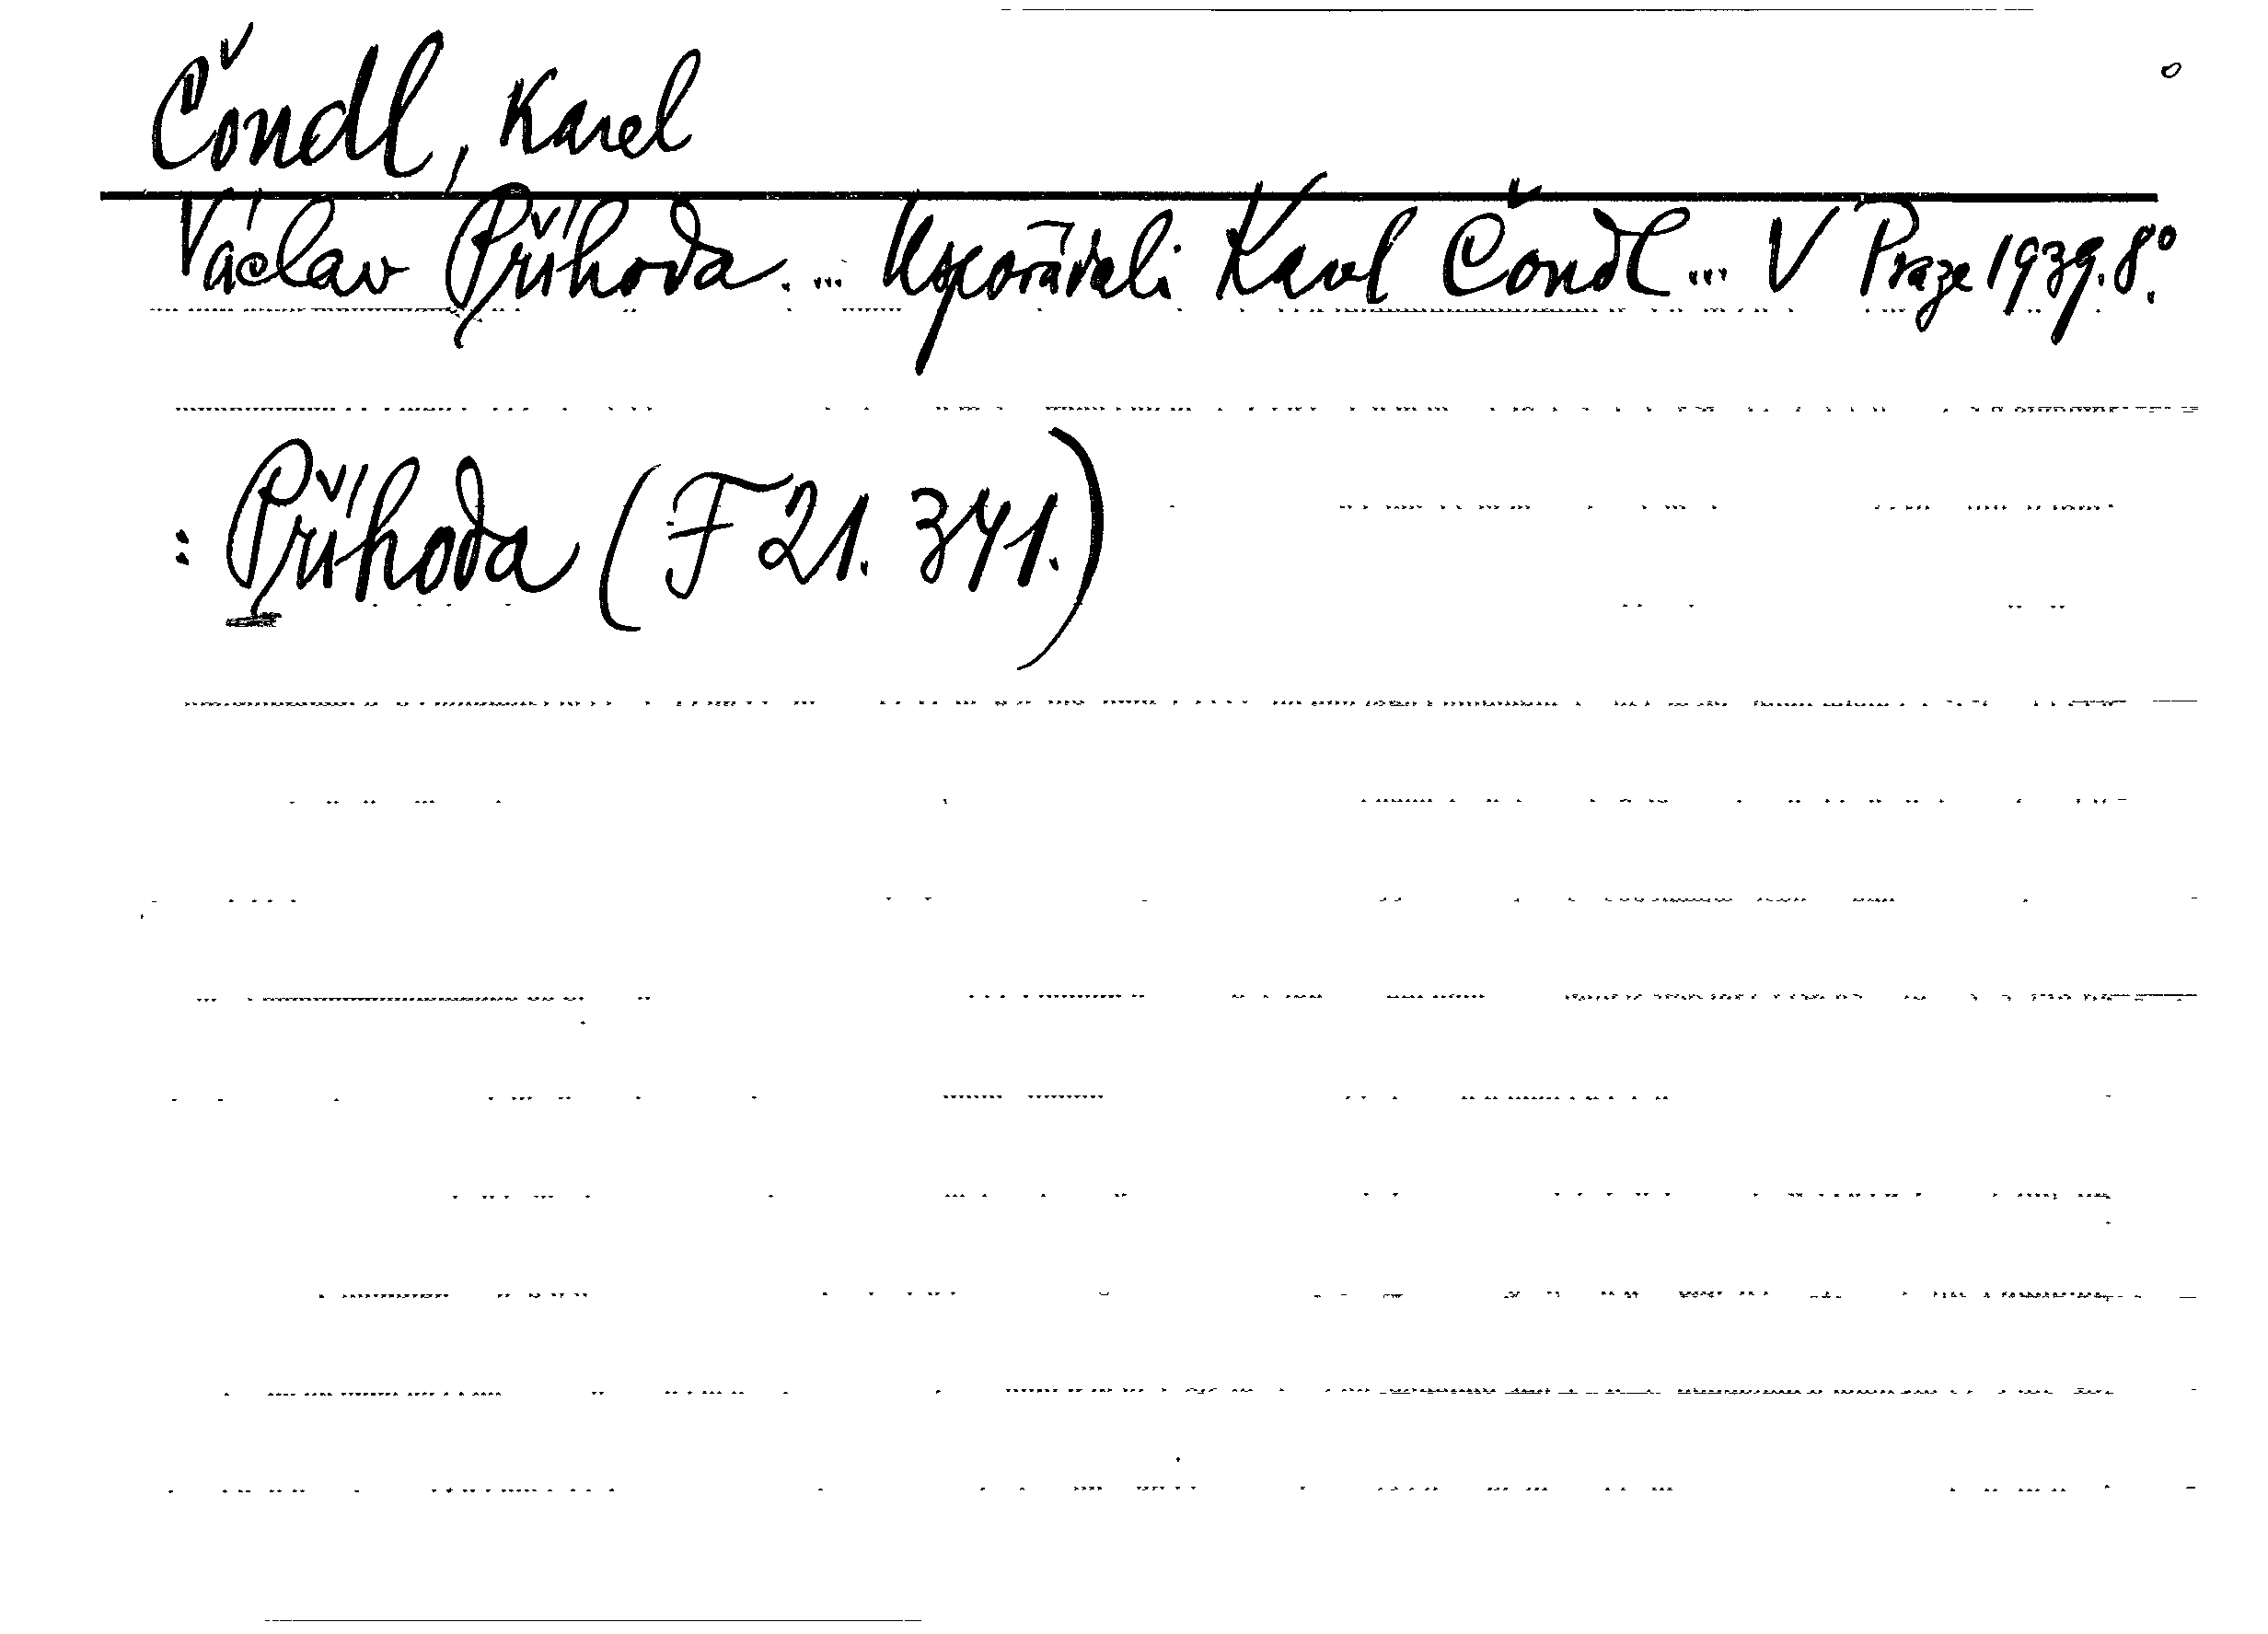 Čondl, Karel
Václav Příhoda. ... Uspořádali Karel Čondl ... V Praze 1939. 8°.
: Příhoda (F 21. 341.)